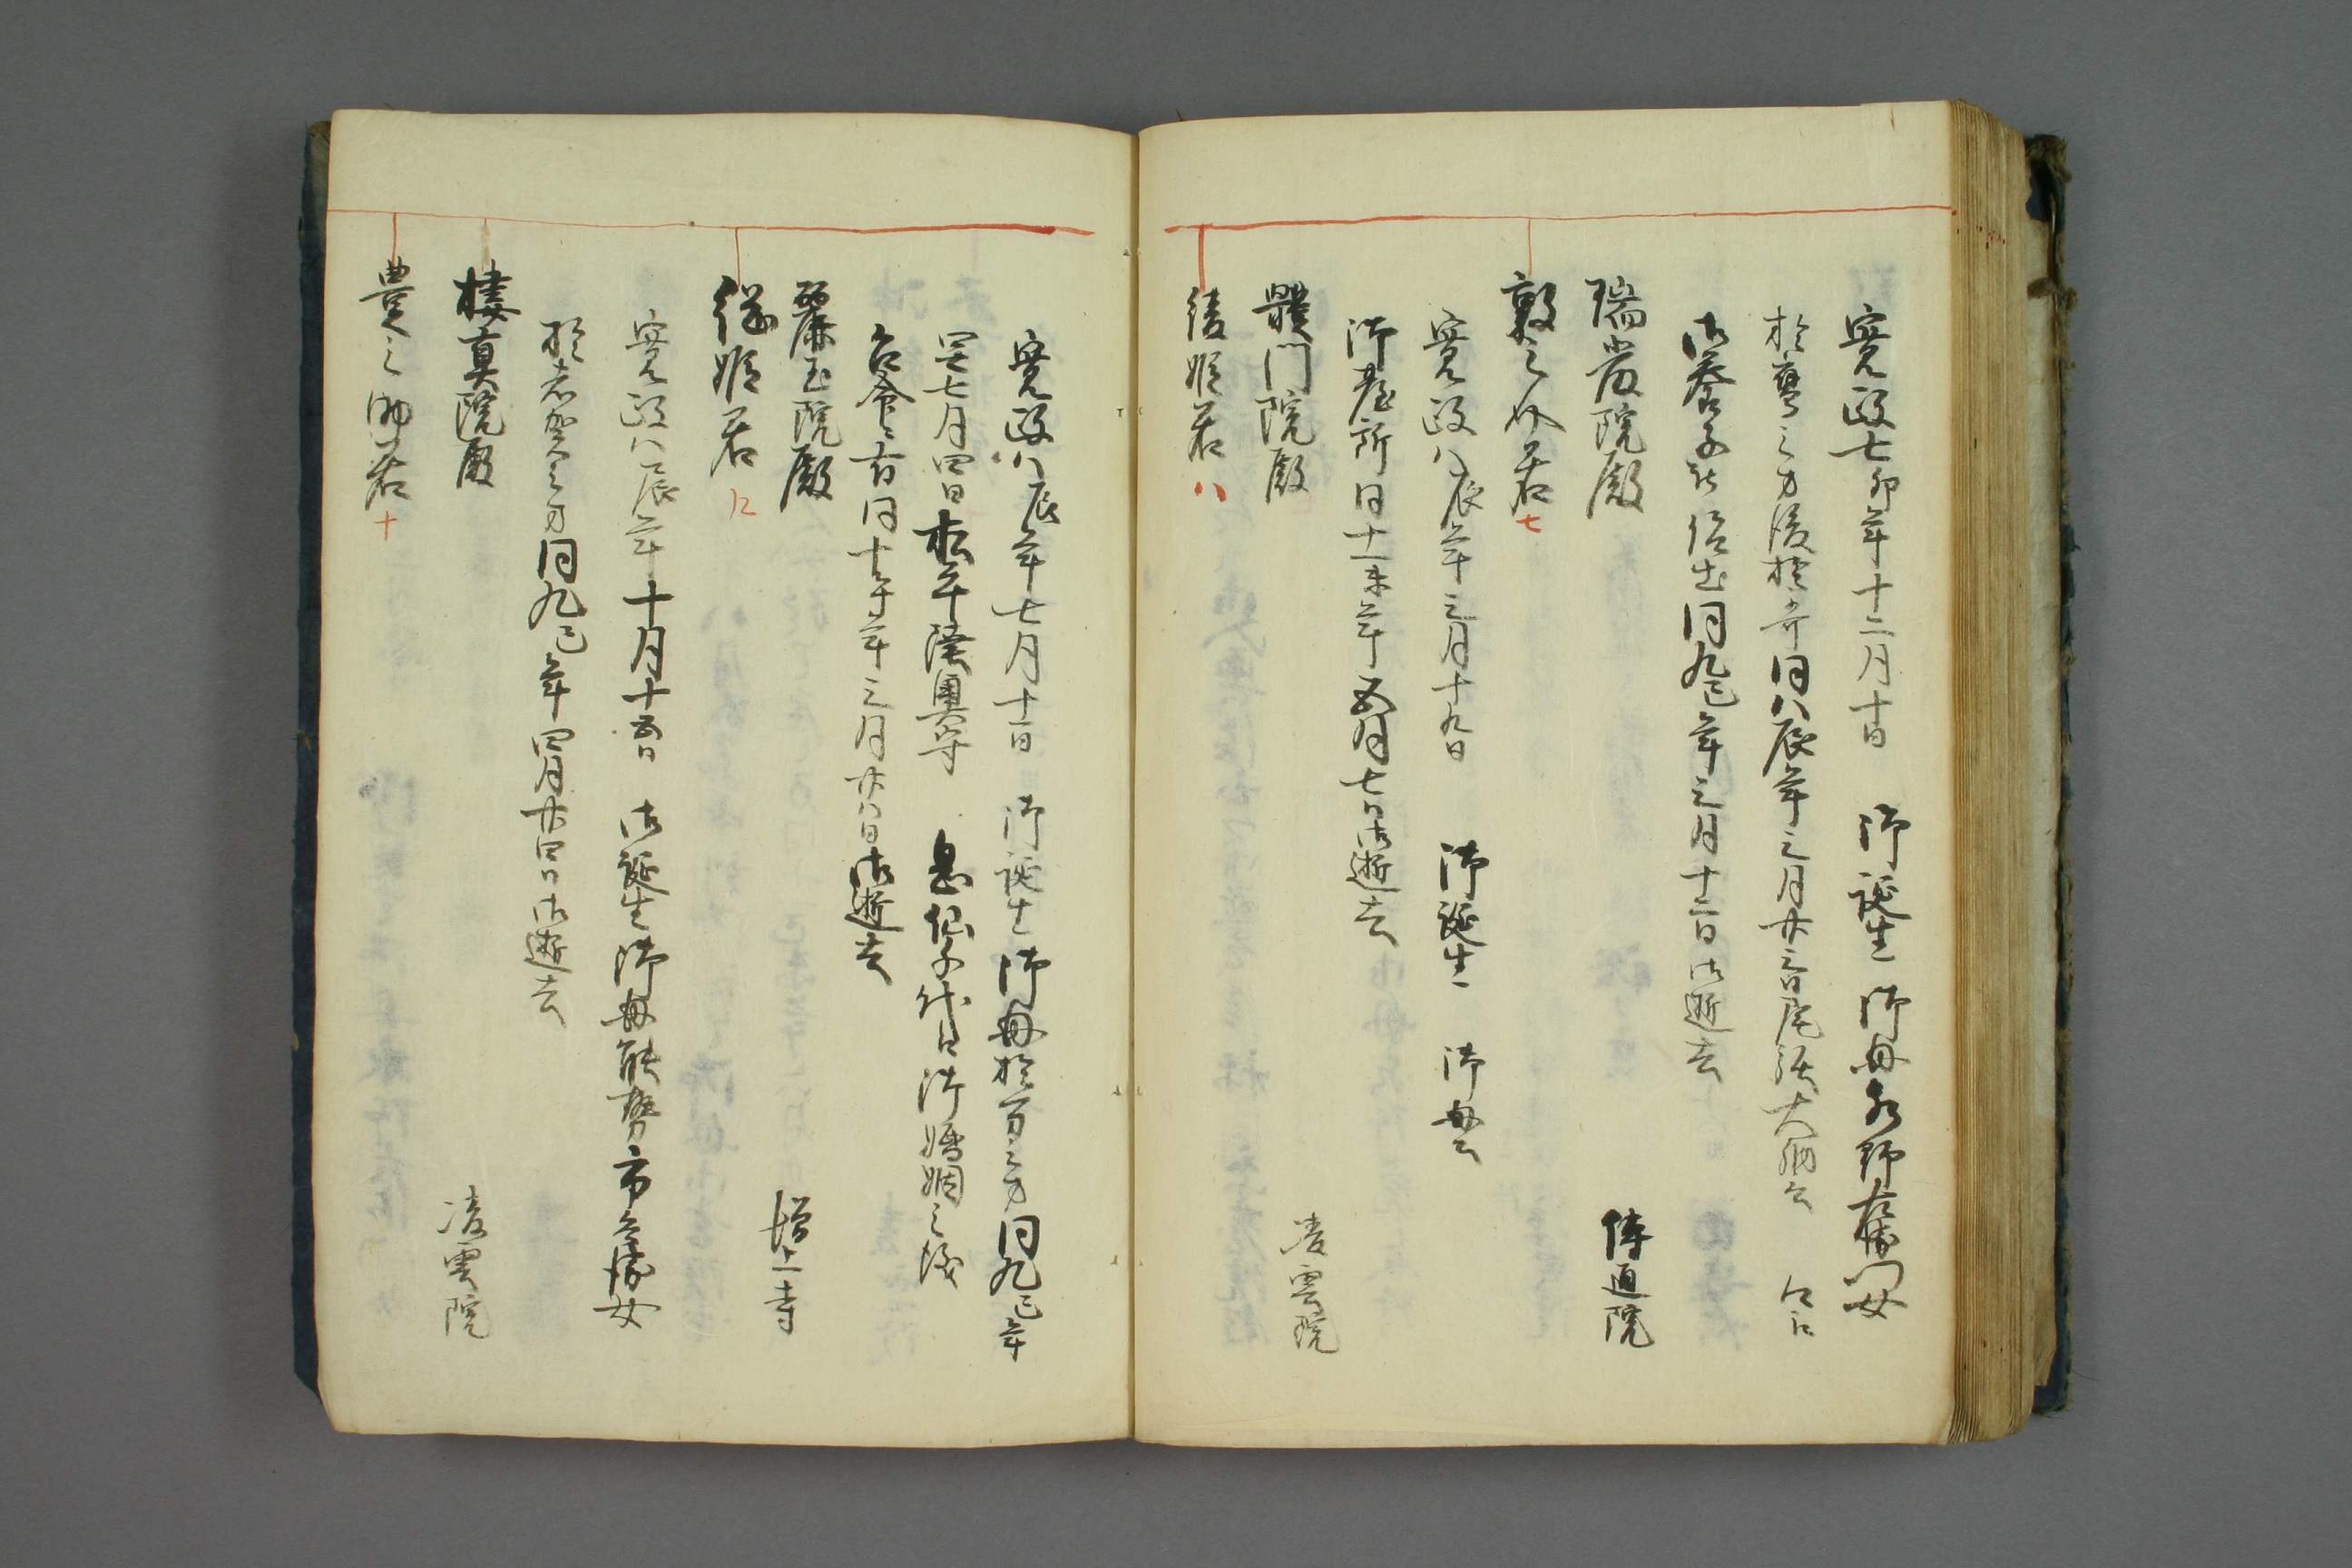 寛政七卯年十二月十日 御誕生 御母水野権十郎女
於尊之方後於卉同八辰年三月廿三日尾張大納言
御養子被仰出同九巳年三月十二日御逝去
瑞厳院殿 伝通院
敦之助君 七
寛政八辰年三月十九日 御誕生 御母公
御台所同十一未年五月七日御逝去
體門院殿 凌雲院
綾姫君 八
寛政八辰年七月十一日 御誕生 御母於万之方同九巳年
閏七月四日松平陸奥守 息 御婚姻之儀
台命有同十午年三月廿八日御逝去
麗玉院殿 増上寺
総姫君 九
寛政八辰年十月十五日 御誕生 御母能勢市兵衛女
於志賀之方同九巳年四月廿四日御逝去
棲真院殿 凌雲院
豊三郎君 十